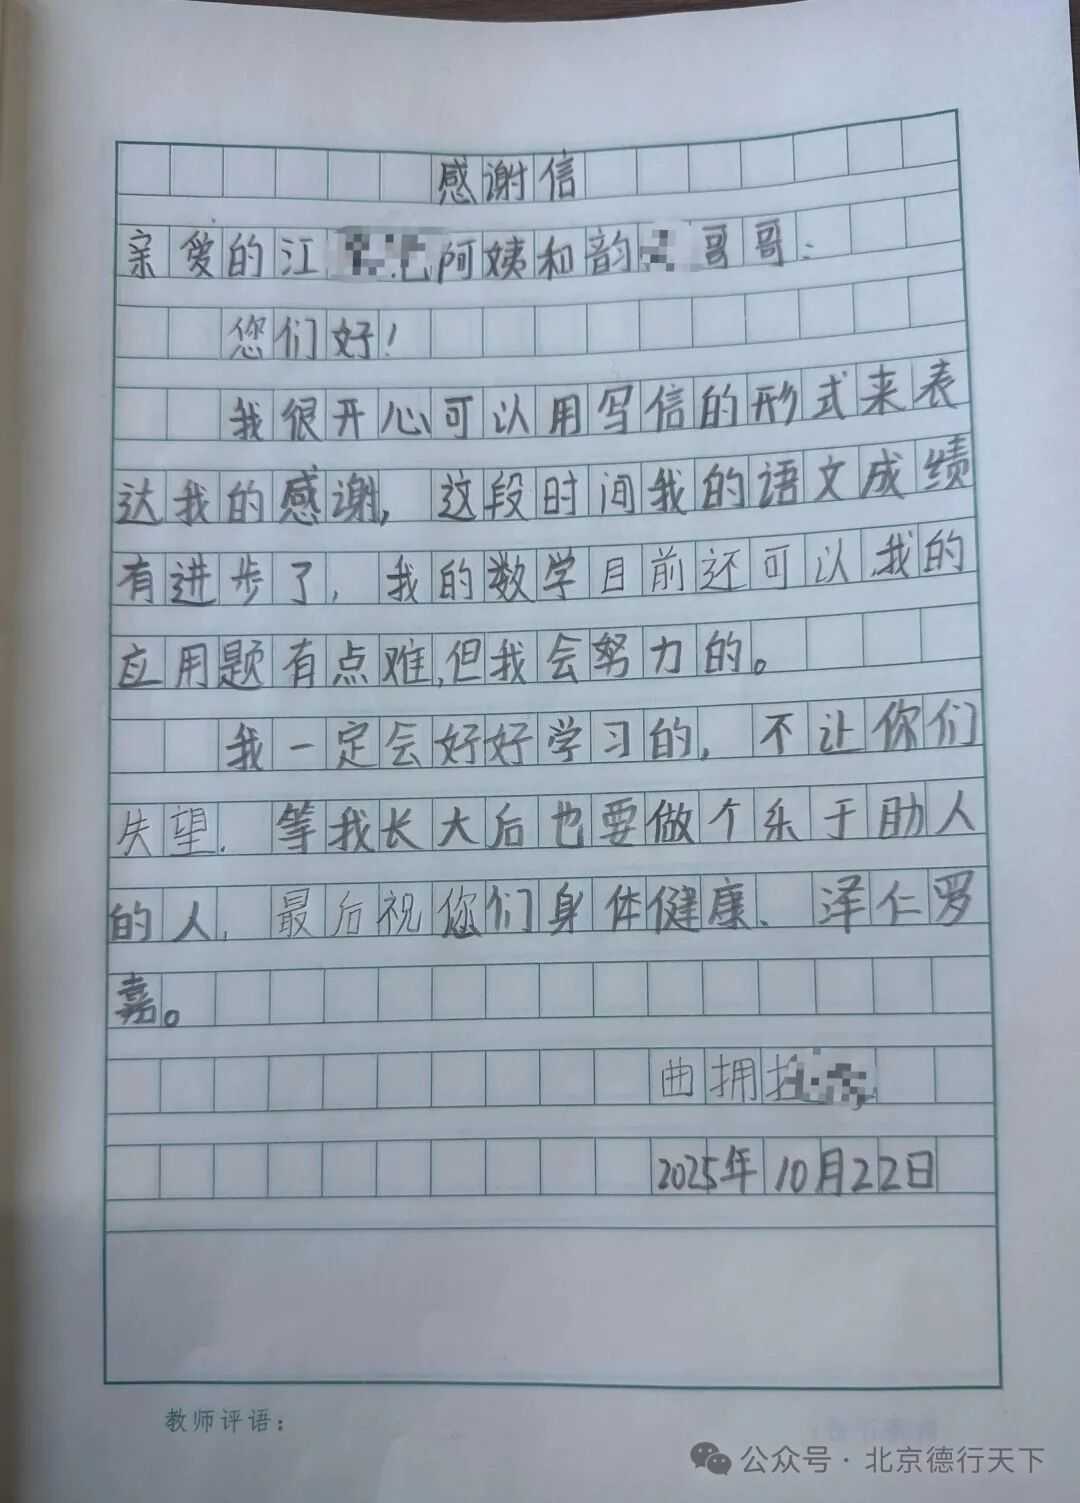 感谢信
亲爱的江 阿姨和韵 哥哥：
您们好！
我很开心可以用写信的形式来表
达我的感谢，这段时间我的语文成绩
有进步了，我的数学目前还可以.我的
应用题有点难，但我会努力的。
我一定会好好学习的，不让你们
失望.等我长大后也要做个乐于助人
的人.最后祝您们身体健康、泽仁罗
嘉。
曲拥
2025年10月22日
教师评语：
公众号·北京德行天下